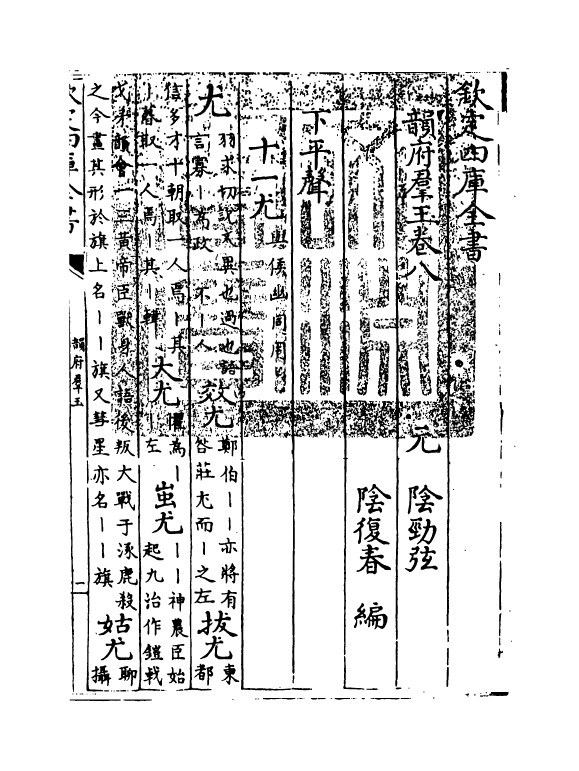 欽定四庫全書
韻府羣玉卷八 元 陰勁弦
陰復春 編
下平聲
十一尤 與侯幽同用
尤 羽求切說文異也過也語言寡丨為政不丨人 效尤 鄭伯丨丨亦將有咎莊尤而丨之左 拔尤 東都
信多才十朝取一人焉丨其丨暮取一人焉丨其丨韓 大尤 懼為丨丨左 蚩尤 丨丨神農臣始起九治作鎧戟
戈矛韻會一云黃帝臣獸身人語後叛大戰于涿鹿殺之今畫其形於旗上名丨丨旗又彗星亦名丨丨旗 姑尤 聊攝
欽定四庫全書
韻府羣玉
一